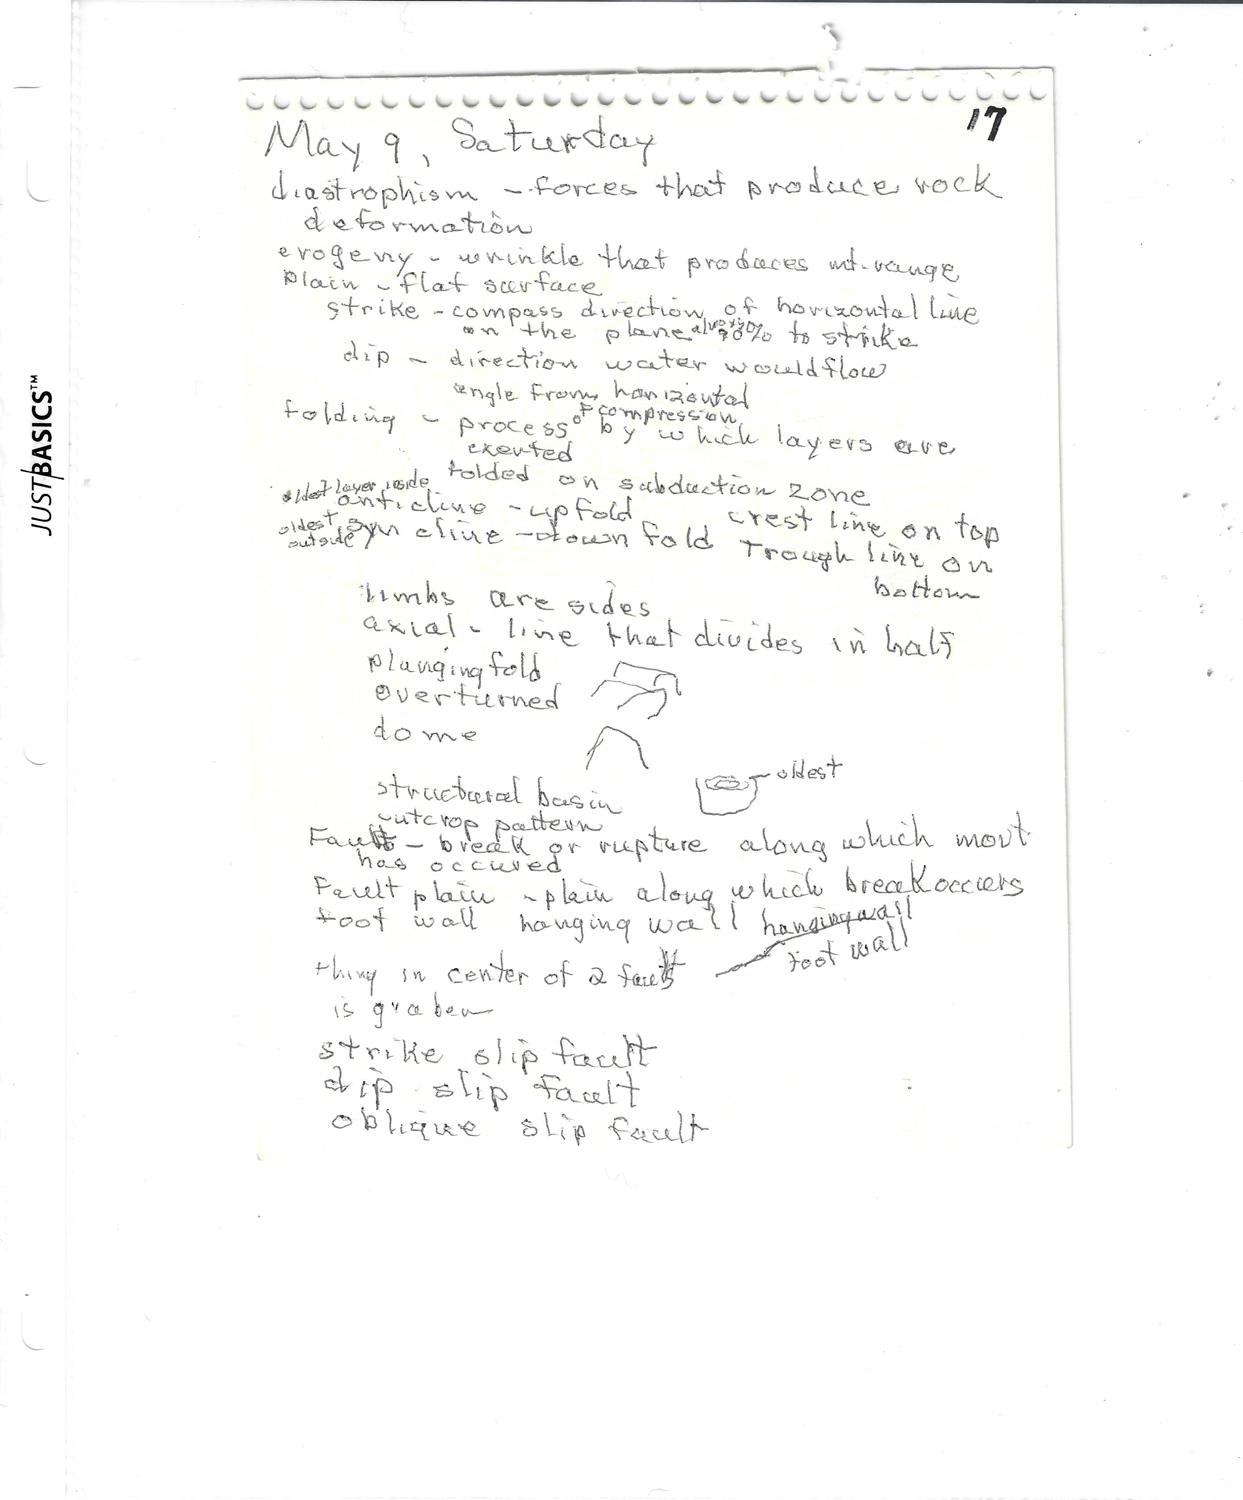 17
May 9, Saturday
diastrophism - forces that produce rock
deformation
evogeny - wrinkle that produces mt. range
plain - flat surface
strike - compass direction of horizontal line
on the plane always 90% to strike
dip - direction water would flow
angle from horizontal
folding - process of compression by which layers are
exerted
folded on subduction zone
oldest layer inside
anticline - upfold crest line on top
oldest outside
syncline - down fold Trough line on
bottom
limbs are sides
axial - line that divides in half
plunging fold
overturned
dome
oldest
structural basin
outcrop pattern
Fault - break or rupture along which movt
has occured
Fault plain - plain along which break occiers
foot wall hanging wall hanging wall
foot wall
thing in center of 2 faults
is graben
strike slip fault
dip slip fault
oblique slip fault
JUST BASICS™